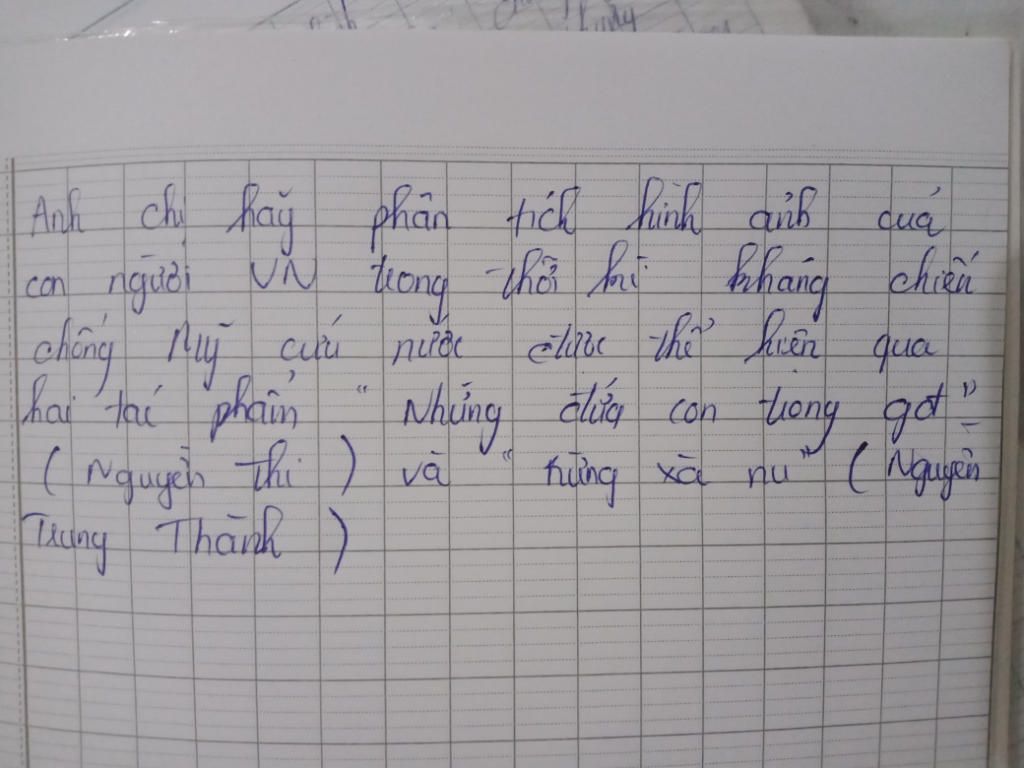 Anh chị hãy phân tích hình ảnh quả
con người VN trong thời kì kháng chiến
chống Mỹ cứu nước được thể hiện qua
hai tác phẩm " Những đứa con trong gđ "
( Nguyễn Thi ) và " rừng xà nu " ( Nguyễn
Trung Thành )